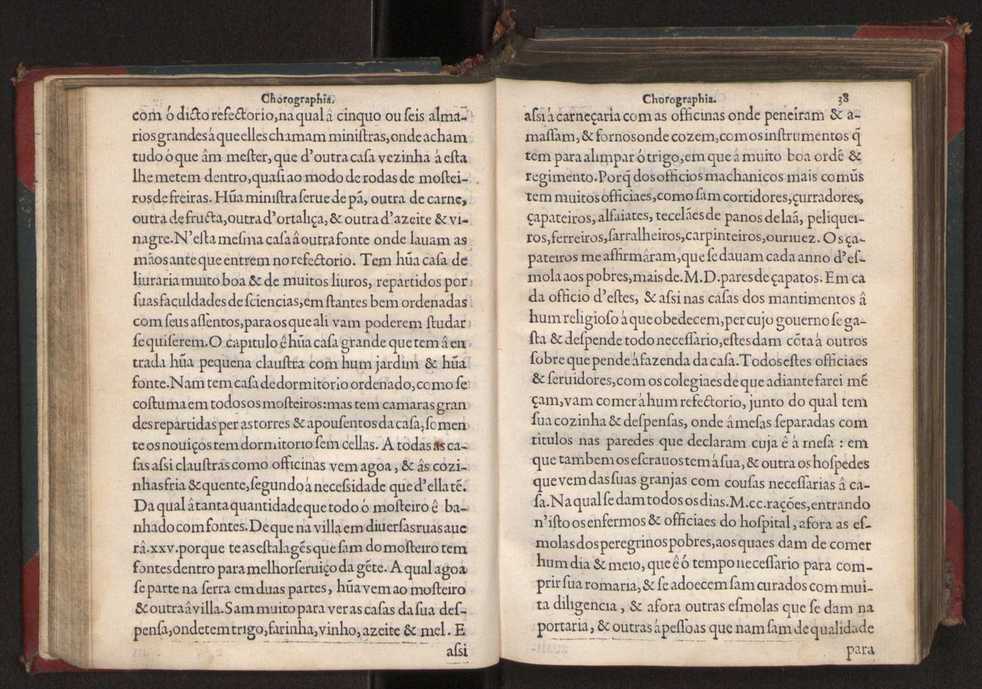 Chorographia.
com ó dicto refectorio, na qual â cinquo ou seis alma-
rios grandes à que elles chamam ministras, onde acham
tudo ó que âm mester, que d'outra casa vezinha á esta
lhe metem dentro, quasi ao modo de rodas de mostei-
ros de freiras. Hũa ministra serue de pã, outra de carne,
outra de fructa, outra d'ortaliça, & outra d'azeite & vi-
nagre. N'esta mesma casa â outra fonte onde lauam as
mãos ante que entrem no refectorio. Tem hũa casa de
liuraria muito boa & de muitos liuros, repartidos por
suas faculdades de sciencias, em stantes bem ordenadas
com seus assentos, para os que ali vam poderem studar
se quiserem. O capitulo ê hũa casa grande que tem â en
trada hũa pequena claustra com hum jardim & hũa
fonte. Nam tem casa de dormitorio ordenado, como se
costuma em todos os mosteiros: mas tem camaras gran
des repartidas per as torres & apousentos da casa, somen
te os nouiços tem dormitorio sem cellas. A todas as ca-
sas assi claustras como officinas vem agoa, & âs cozi-
nhas fria & quente, segundo á necessidade que d'ella tẽ.
Da qual â tanta quantidade que todo ó mosteiro ê ba-
nhado com fontes. De que na villa em diuersas ruas aue
râ .xxv. porque te as estalagẽs que sam do mosteiro tem
fontes dentro para melhor seruiço da gẽte. A qual agoa
se parte na serra em duas partes, hũa vem ao mosteiro
& outra â villa. Sam muito para ver as casas da sua des-
pensa, onde tem trigo, farinha, vinho, azeite & mel. E
assi
Chorographia. 38
assi á carneçaria com as officinas onde peneiram & a-
massam, & fornos onde cozem, com os instrumentos q̃
tem para alimpar ó trigo, em que â muito boa ordẽ &
regimento. Porq̃ dos officios machanicos mais comũs
tem muitos officiaes, como sam cortidores, çurradores,
çapateiros, alfaiates, tecelães de panos de laã, peliquei-
ros, ferreiros, sarralheiros, carpinteiros, ouriuez. Os ça-
pateiros me affirmâram, que se dauam cada anno d'es-
mola aos pobres, mais de .M.D. pares de çapatos. Em ca
da officio d'estes, & assi nas casas dos mantimentos â
hum religioso à que obedecem, per cujo gouerno se ga-
sta & despende todo necessario, estes dam cõta à outros
sobre que pende á fazenda da casa. Todos estes officiaes
& seruidores, com os colegiaes de que adiante farei mẽ
çam, vam comer à hum refectorio, junto do qual tem
sua cozinha & despensas, onde â mesas separadas com
titulos nas paredes que declaram cuja ê á mesa: em
que tambem os escrauos tem á sua, & outra os hospedes
que vem das suas granjas com cousas necessarias â ca-
sa. Na qual se dam todos os dias .M.cc. rações, entrando
n'isto os enfermos & officiaes do hospital, afora as es-
molas dos peregrinos pobres, aos quaes dam de comer
hum dia & meio, que ê ó tempo necessario para com-
prir sua romaria, & se adoecem sam curados com mui-
ta diligencia, & afora outras esmolas que se dam na
portaria, & outras à pessoas que nam sam de qualidade
para